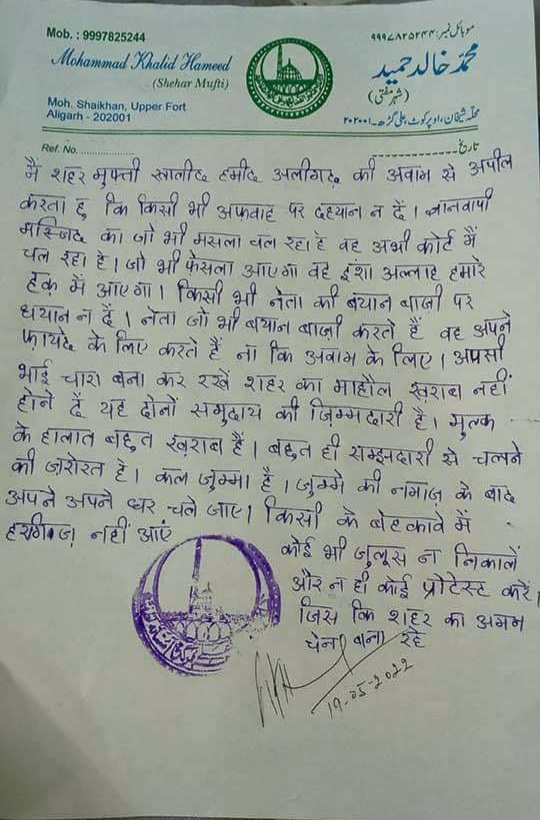 Mob. : 9997825244
Mohammad Khalid Hameed
(Shehar Mufti)
Moh. Shaikhan, Upper Fort
Aligarh - 202001
موبائل نمبر: ۹۹۹۷۸۲۵۲۴۴
محمد خالد حمید
(شہر مفتی)
محلہ شیخان، اوپر کوٹ، علی گڑھ۔ ۲۰۲۰۰۱
Ref. No.
تاریخ
मैं शहर मुफ्ती खालीद हमीद अलीगढ़ की अवाम से अपील
करता हु कि किसी भी अफवाह पर दहयान न दें। ज्ञानवापी
मस्जिद का जो भी मसला चल रहा है वह अभी कोर्ट में
चल रहा है। जो भी फैसला आएगा वह इंशा अल्लाह हमारे
हक में आएगा। किसी भी नेता की बयान बाजी पर
धयान न दें। नेता जो भी बयान बाज़ी करते हैं वह अपने
फायदे के लिए करते हैं ना कि अवाम के लिए। आपसी
भाई चारा बना कर रखें शहर का माहौल खराब नहीं
होने दें यह दोनों समुदाय की ज़िम्मदारी है। मुल्क
के हालात बहुत खराब हैं। बहुत ही समझदारी से चलने
की ज़रोरत है। कल जुम्मा है। जुम्मे की नमाज के बाद
अपने अपने घर चले जाए। किसी के बेहकावे में
हरगिज़ नहीं आएं
कोई भी जुलूस न निकालें
और न ही कोई प्रोटेस्ट करें।
जिस कि शहर का अमन
चेन बना रहे
19-05-2022